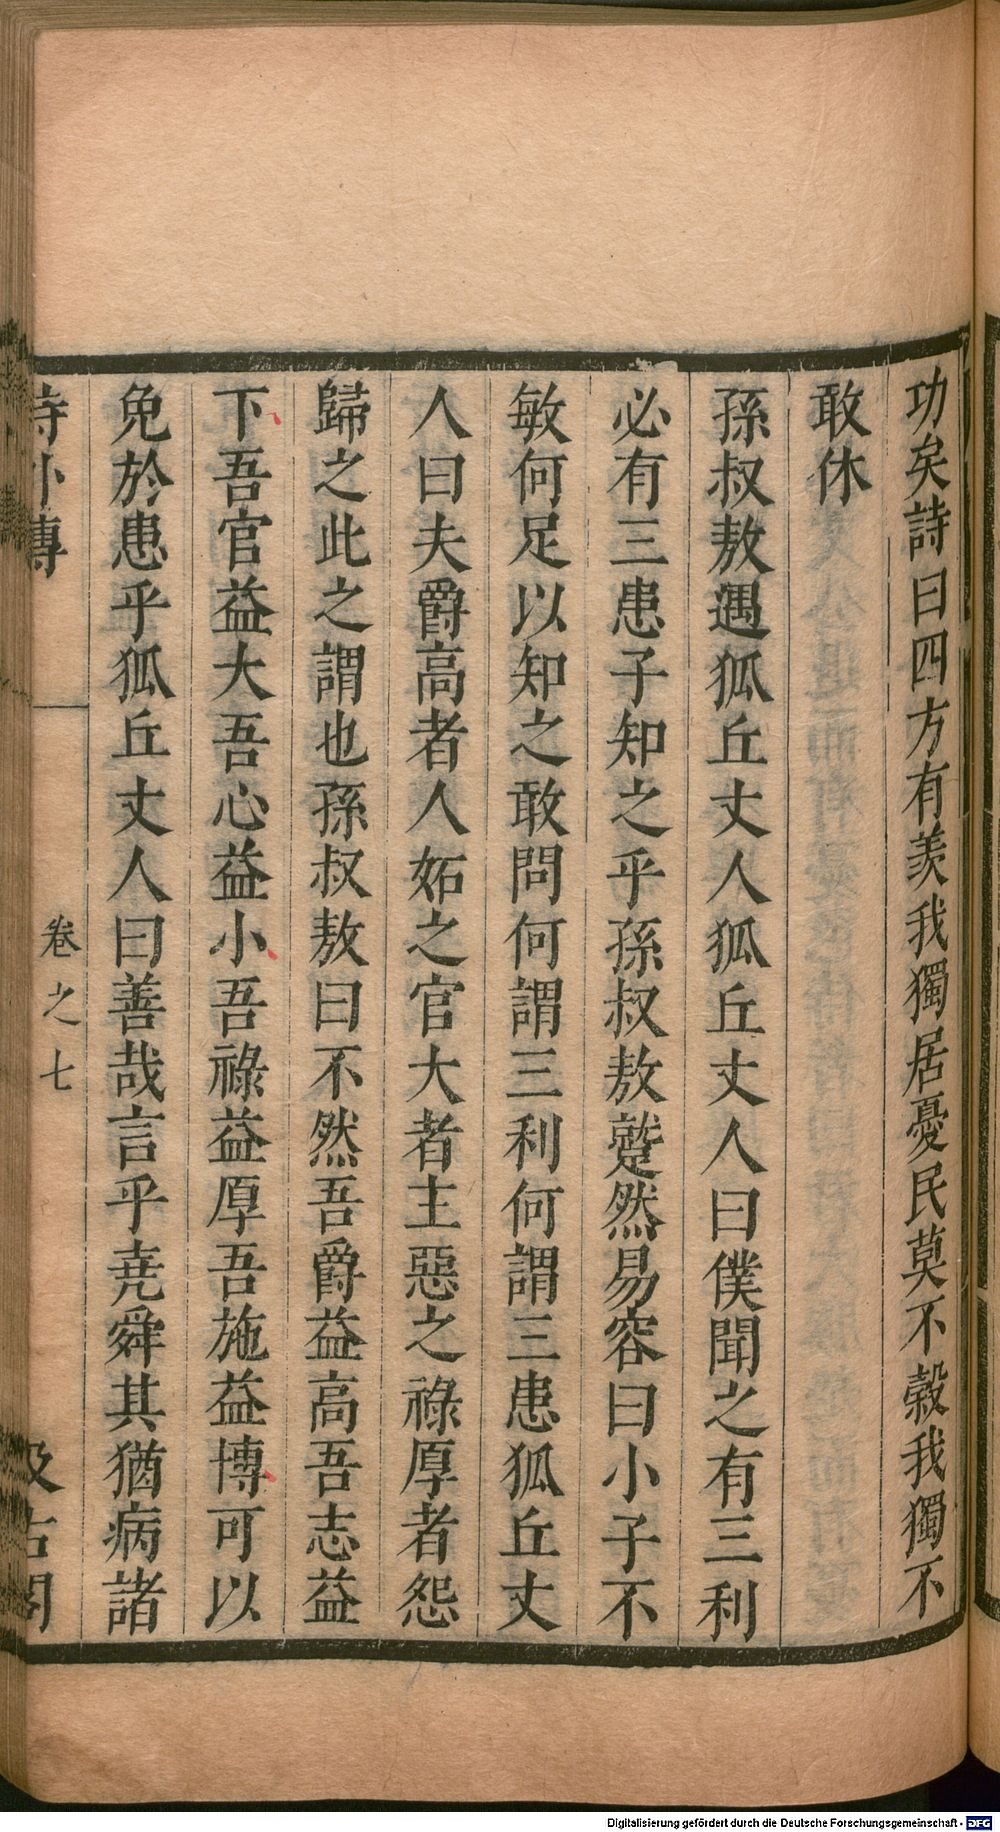 功矣詩曰四方有羨我獨居憂民莫不榖我獨不
敢休
孫叔敖遇狐丘丈人狐丘丈人曰僕聞之有三利
必有三患子知之乎孫叔敖蹵然易容曰小子不
敏何足以知之敢問何謂三利何謂三患狐丘丈
人曰夫爵高者人妬之官大者主惡之祿厚者怨
歸之此之謂也孫叔敖曰不然吾爵益高吾志益
下吾官益大吾心益小吾祿益厚吾施益博可以
免於患乎狐丘丈人曰善哉言乎尭舜其猶病諸
詩外傳 卷之七 汲古閣
Digitalisierung gefördert durch die Deutsche Forschungsgemeinschaft - DFG